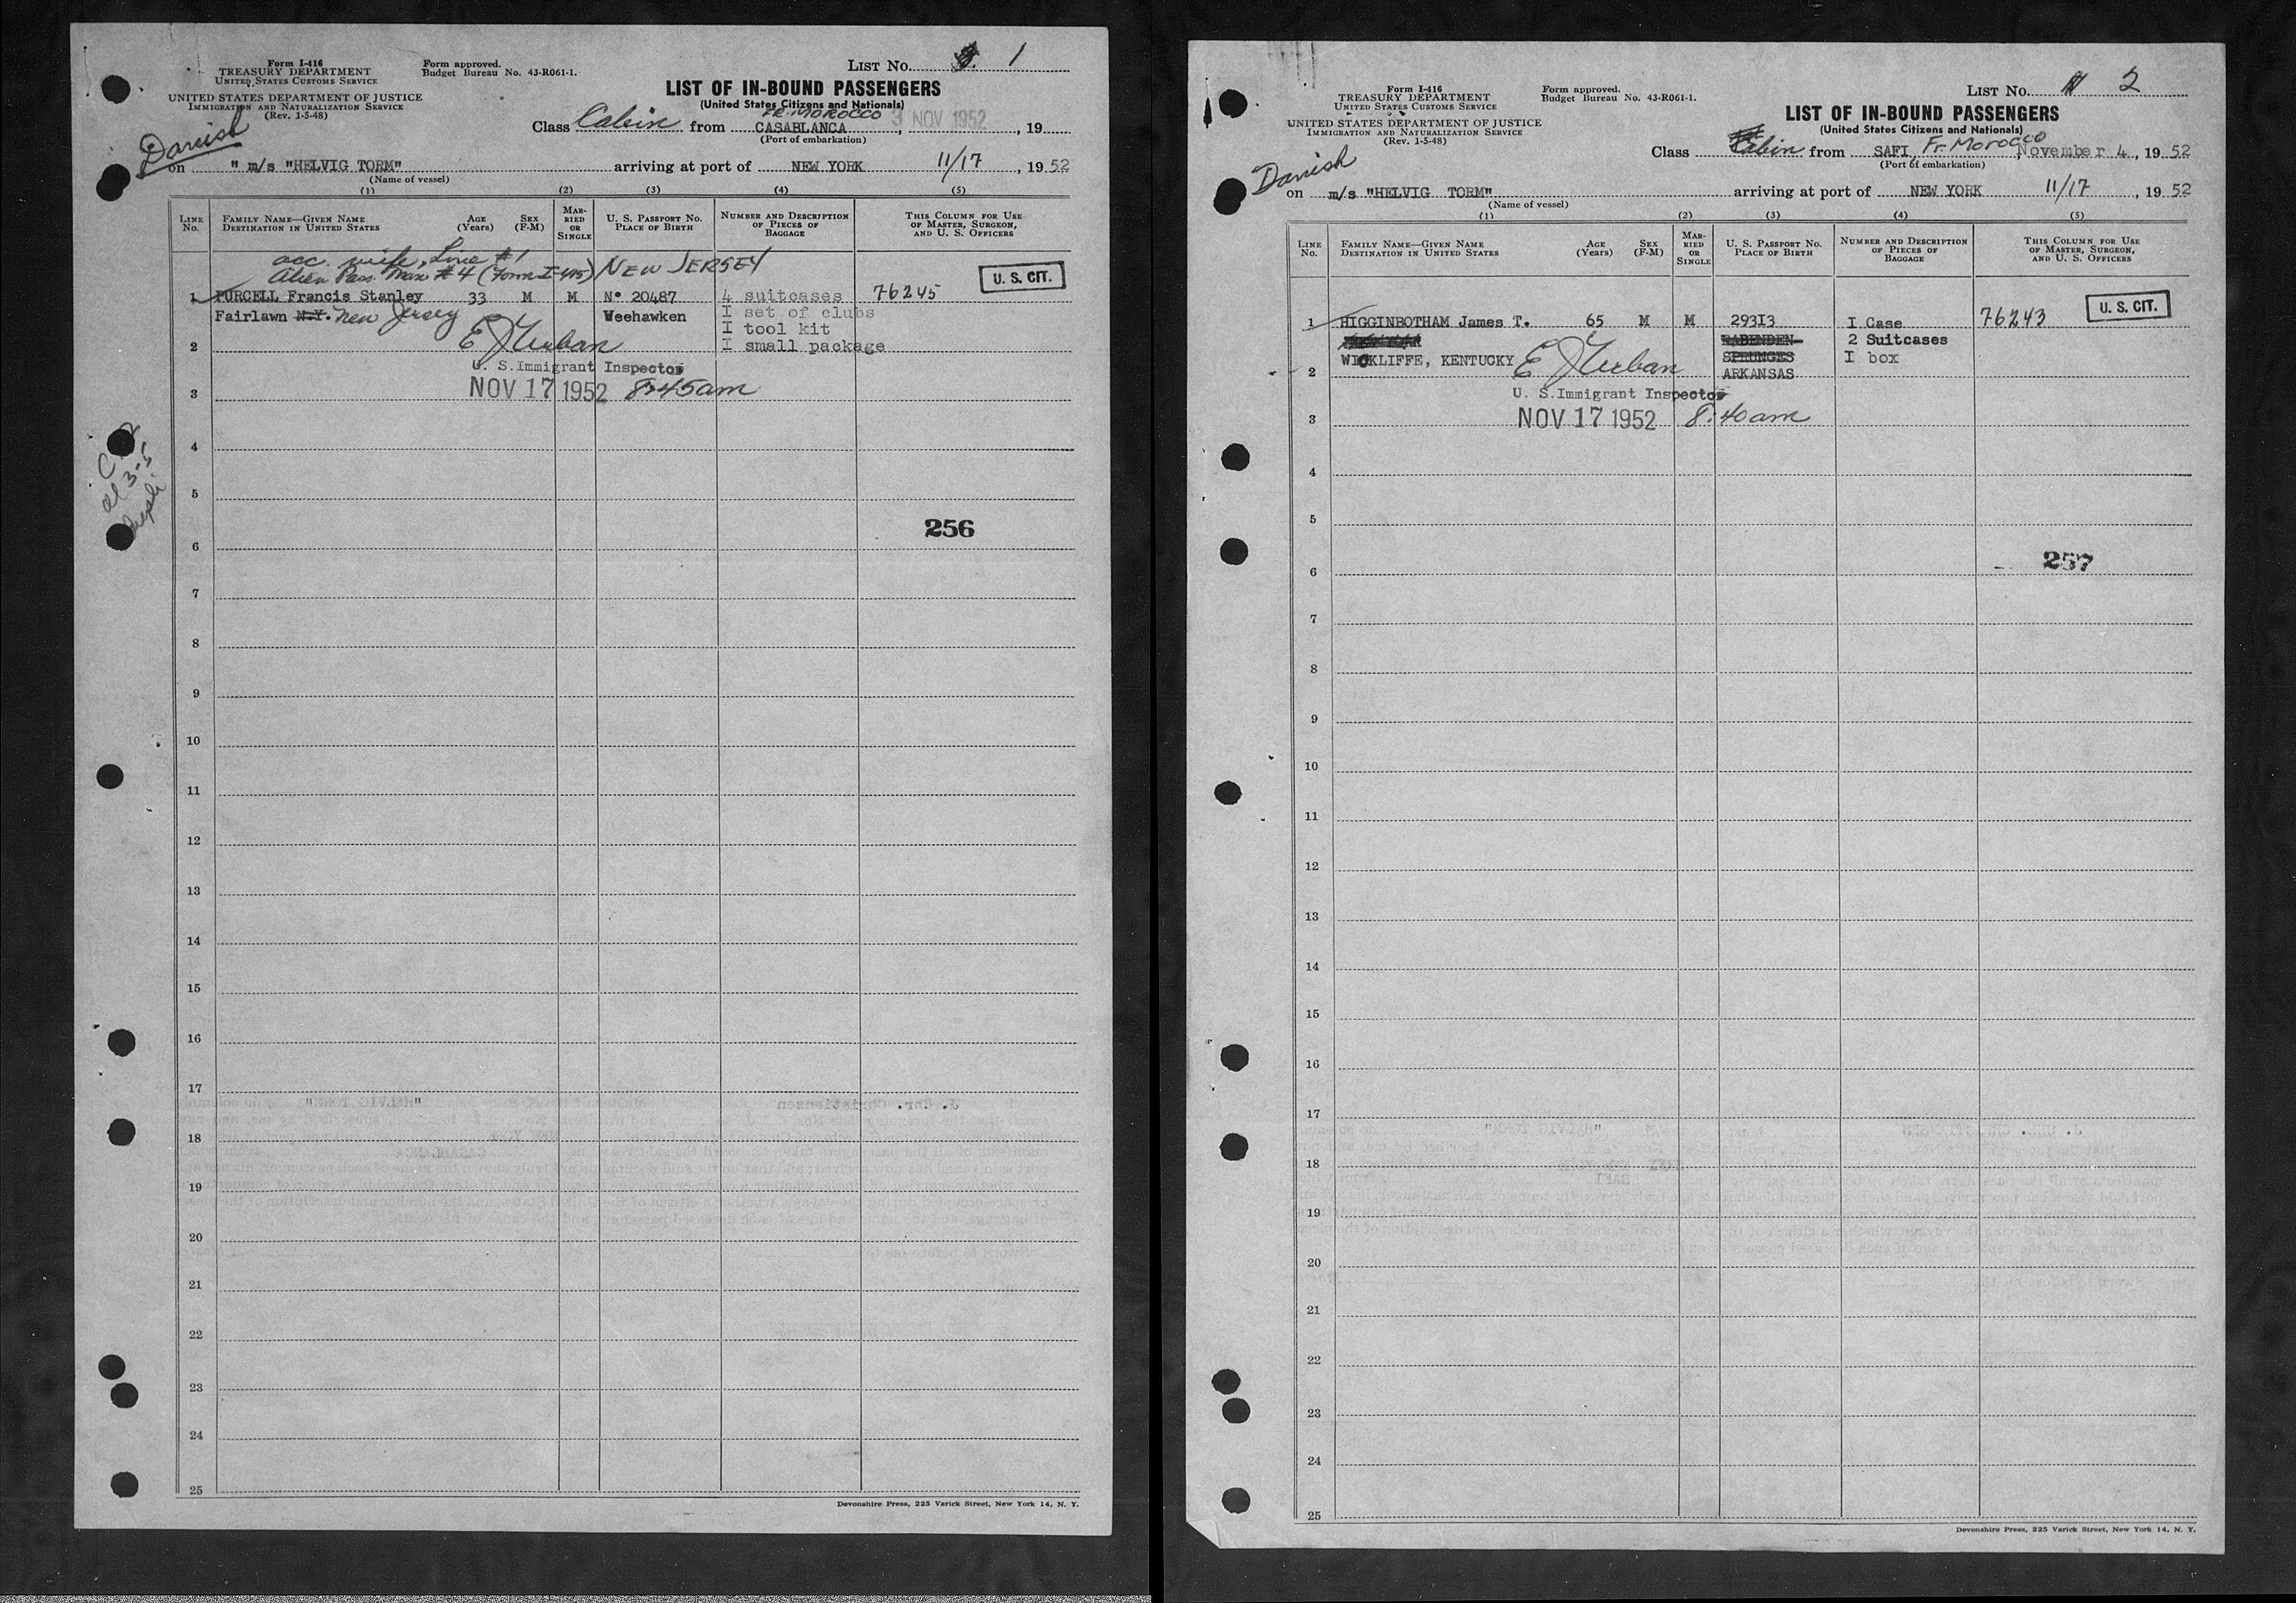 Form I-416
TREASURY DEPARTMENT
UNITED STATES CUSTOMS SERVICE
UNITED STATES DEPARTMENT OF JUSTICE
IMMIGRATION AND NATURALIZATION SERVICE
(Rev. 1-5-48)
Form approved.
Budget Bureau No. 43-R061-1.
LIST NO. 1
LIST OF IN-BOUND PASSENGERS
(United States Citizens and Nationals)
Class Cabin from CASABLANCA FR. MOROCCO, 3 NOV 1952, 19
(Port of embarkation)
Danish
on " m/s "HELVIG TORM" arriving at port of NEW YORK 11/17, 1952
(Name of vessel)
(1) (2) (3) (4) (5)
LINE NO. FAMILY NAME—GIVEN NAME DESTINATION IN UNITED STATES AGE (Years) SEX (F-M) MARRIED OR SINGLE U. S. PASSPORT NO. PLACE OF BIRTH NUMBER AND DESCRIPTION OF PIECES OF BAGGAGE THIS COLUMN FOR USE OF MASTER, SURGEON, AND U. S. OFFICERS
acc. wife, Line #1
Alien Pass. Man. #4 (Form I-415) NEW JERSEY
U. S. CIT.
1 PURCELL Francis Stanley 33 M M Nº 20487 4 suitcases 76245
Fairlawn N.Y. New Jersey Weehawken I set of clubs
I tool kit
2 E J Urban I small package
U. S. Immigrant Inspector
3 NOV 17 1952 8:45am
4
5
256
6
7
8
9
10
11
12
13
14
15
16
17
18
19
20
21
22
23
24
25
Devonshire Press, 225 Varick Street, New York 14, N. Y.
Form I-416
TREASURY DEPARTMENT
UNITED STATES CUSTOMS SERVICE
UNITED STATES DEPARTMENT OF JUSTICE
IMMIGRATION AND NATURALIZATION SERVICE
(Rev. 1-5-48)
Form approved.
Budget Bureau No. 43-R061-1.
LIST NO. 2
LIST OF IN-BOUND PASSENGERS
(United States Citizens and Nationals)
Class Cabin from SAFI, Fr. Morocco, November 4, 1952
(Port of embarkation)
Danish
on m/s "HELVIG TORM" arriving at port of NEW YORK 11/17, 1952
(Name of vessel)
(1) (2) (3) (4) (5)
LINE NO. FAMILY NAME—GIVEN NAME DESTINATION IN UNITED STATES AGE (Years) SEX (F-M) MARRIED OR SINGLE U. S. PASSPORT NO. PLACE OF BIRTH NUMBER AND DESCRIPTION OF PIECES OF BAGGAGE THIS COLUMN FOR USE OF MASTER, SURGEON, AND U. S. OFFICERS
U. S. CIT.
1 HIGGINBOTHAM James T. 65 M M 293I3 I Case 76243
RABENDEN- 2 Suitcases
WICKLIFFE, KENTUCKY E J Urban SPRUNGES I box
2 ARKANSAS
U. S. Immigrant Inspector
3 NOV 17 1952 8:40am
4
5
257
6
7
8
9
10
11
12
13
14
15
16
17
18
19
20
21
22
23
24
25
Devonshire Press, 225 Varick Street, New York 14, N. Y.